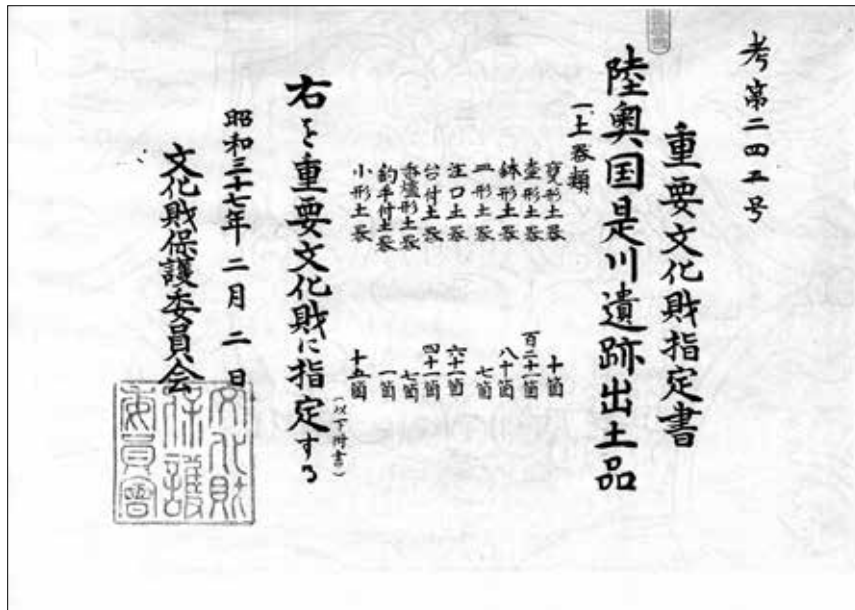 考第二四二号
重要文化財指定書
陸奥国是川遺跡出土品
一土器類
甕形土器 十箇
壺形土器 百二十一箇
鉢形土器 八十箇
皿形土器 七箇
注口土器 六十一箇
台付土器 四十一箇
香爐形土器 七箇
釣手付土器 一箇
小形土器 十五箇
(以下附書)
右を重要文化財に指定する
昭和三十七年二月二日
文化財保護委員会
文化財
保護
委員會